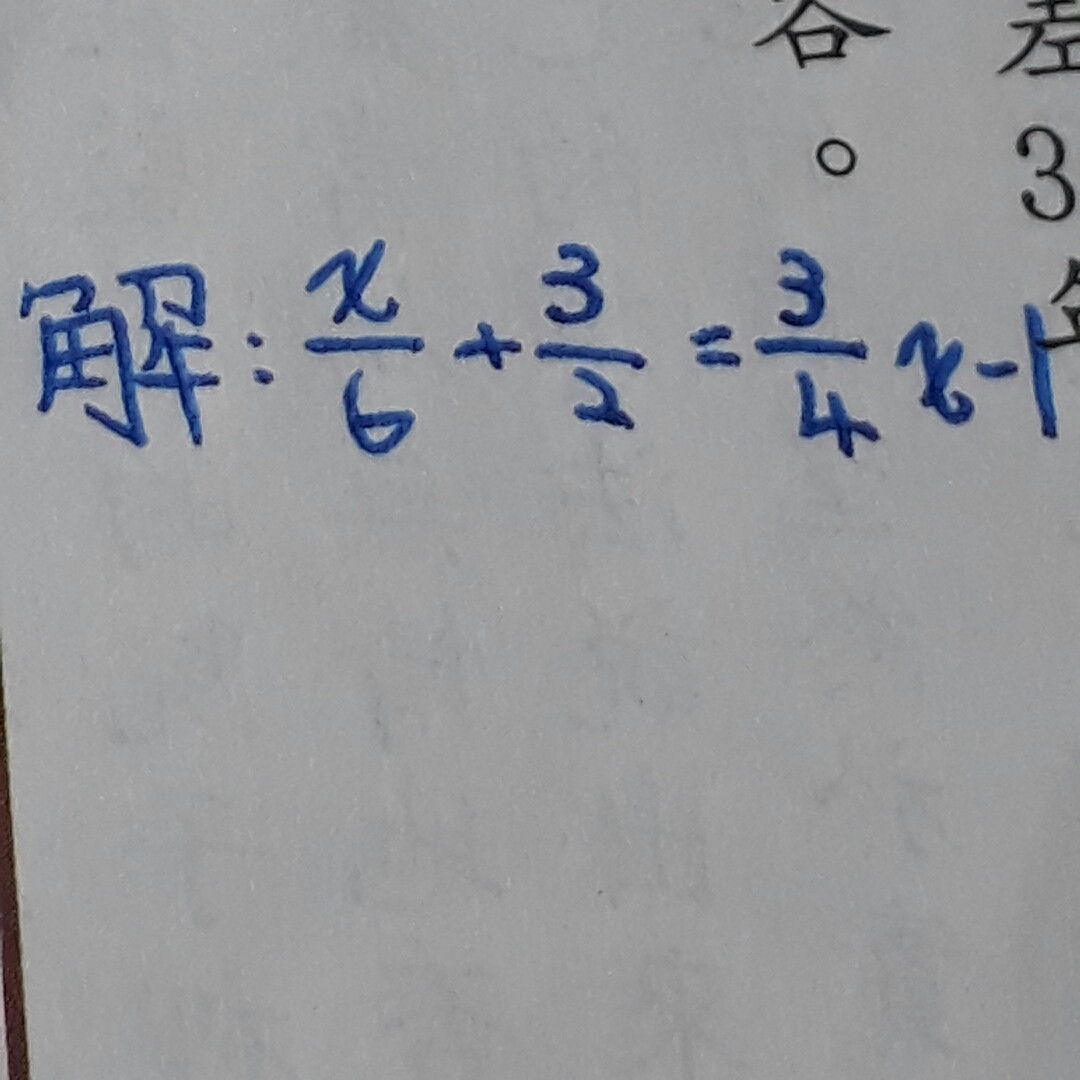 答 差
。 3
解: x/6 + 3/2 = 3/4 x - 1